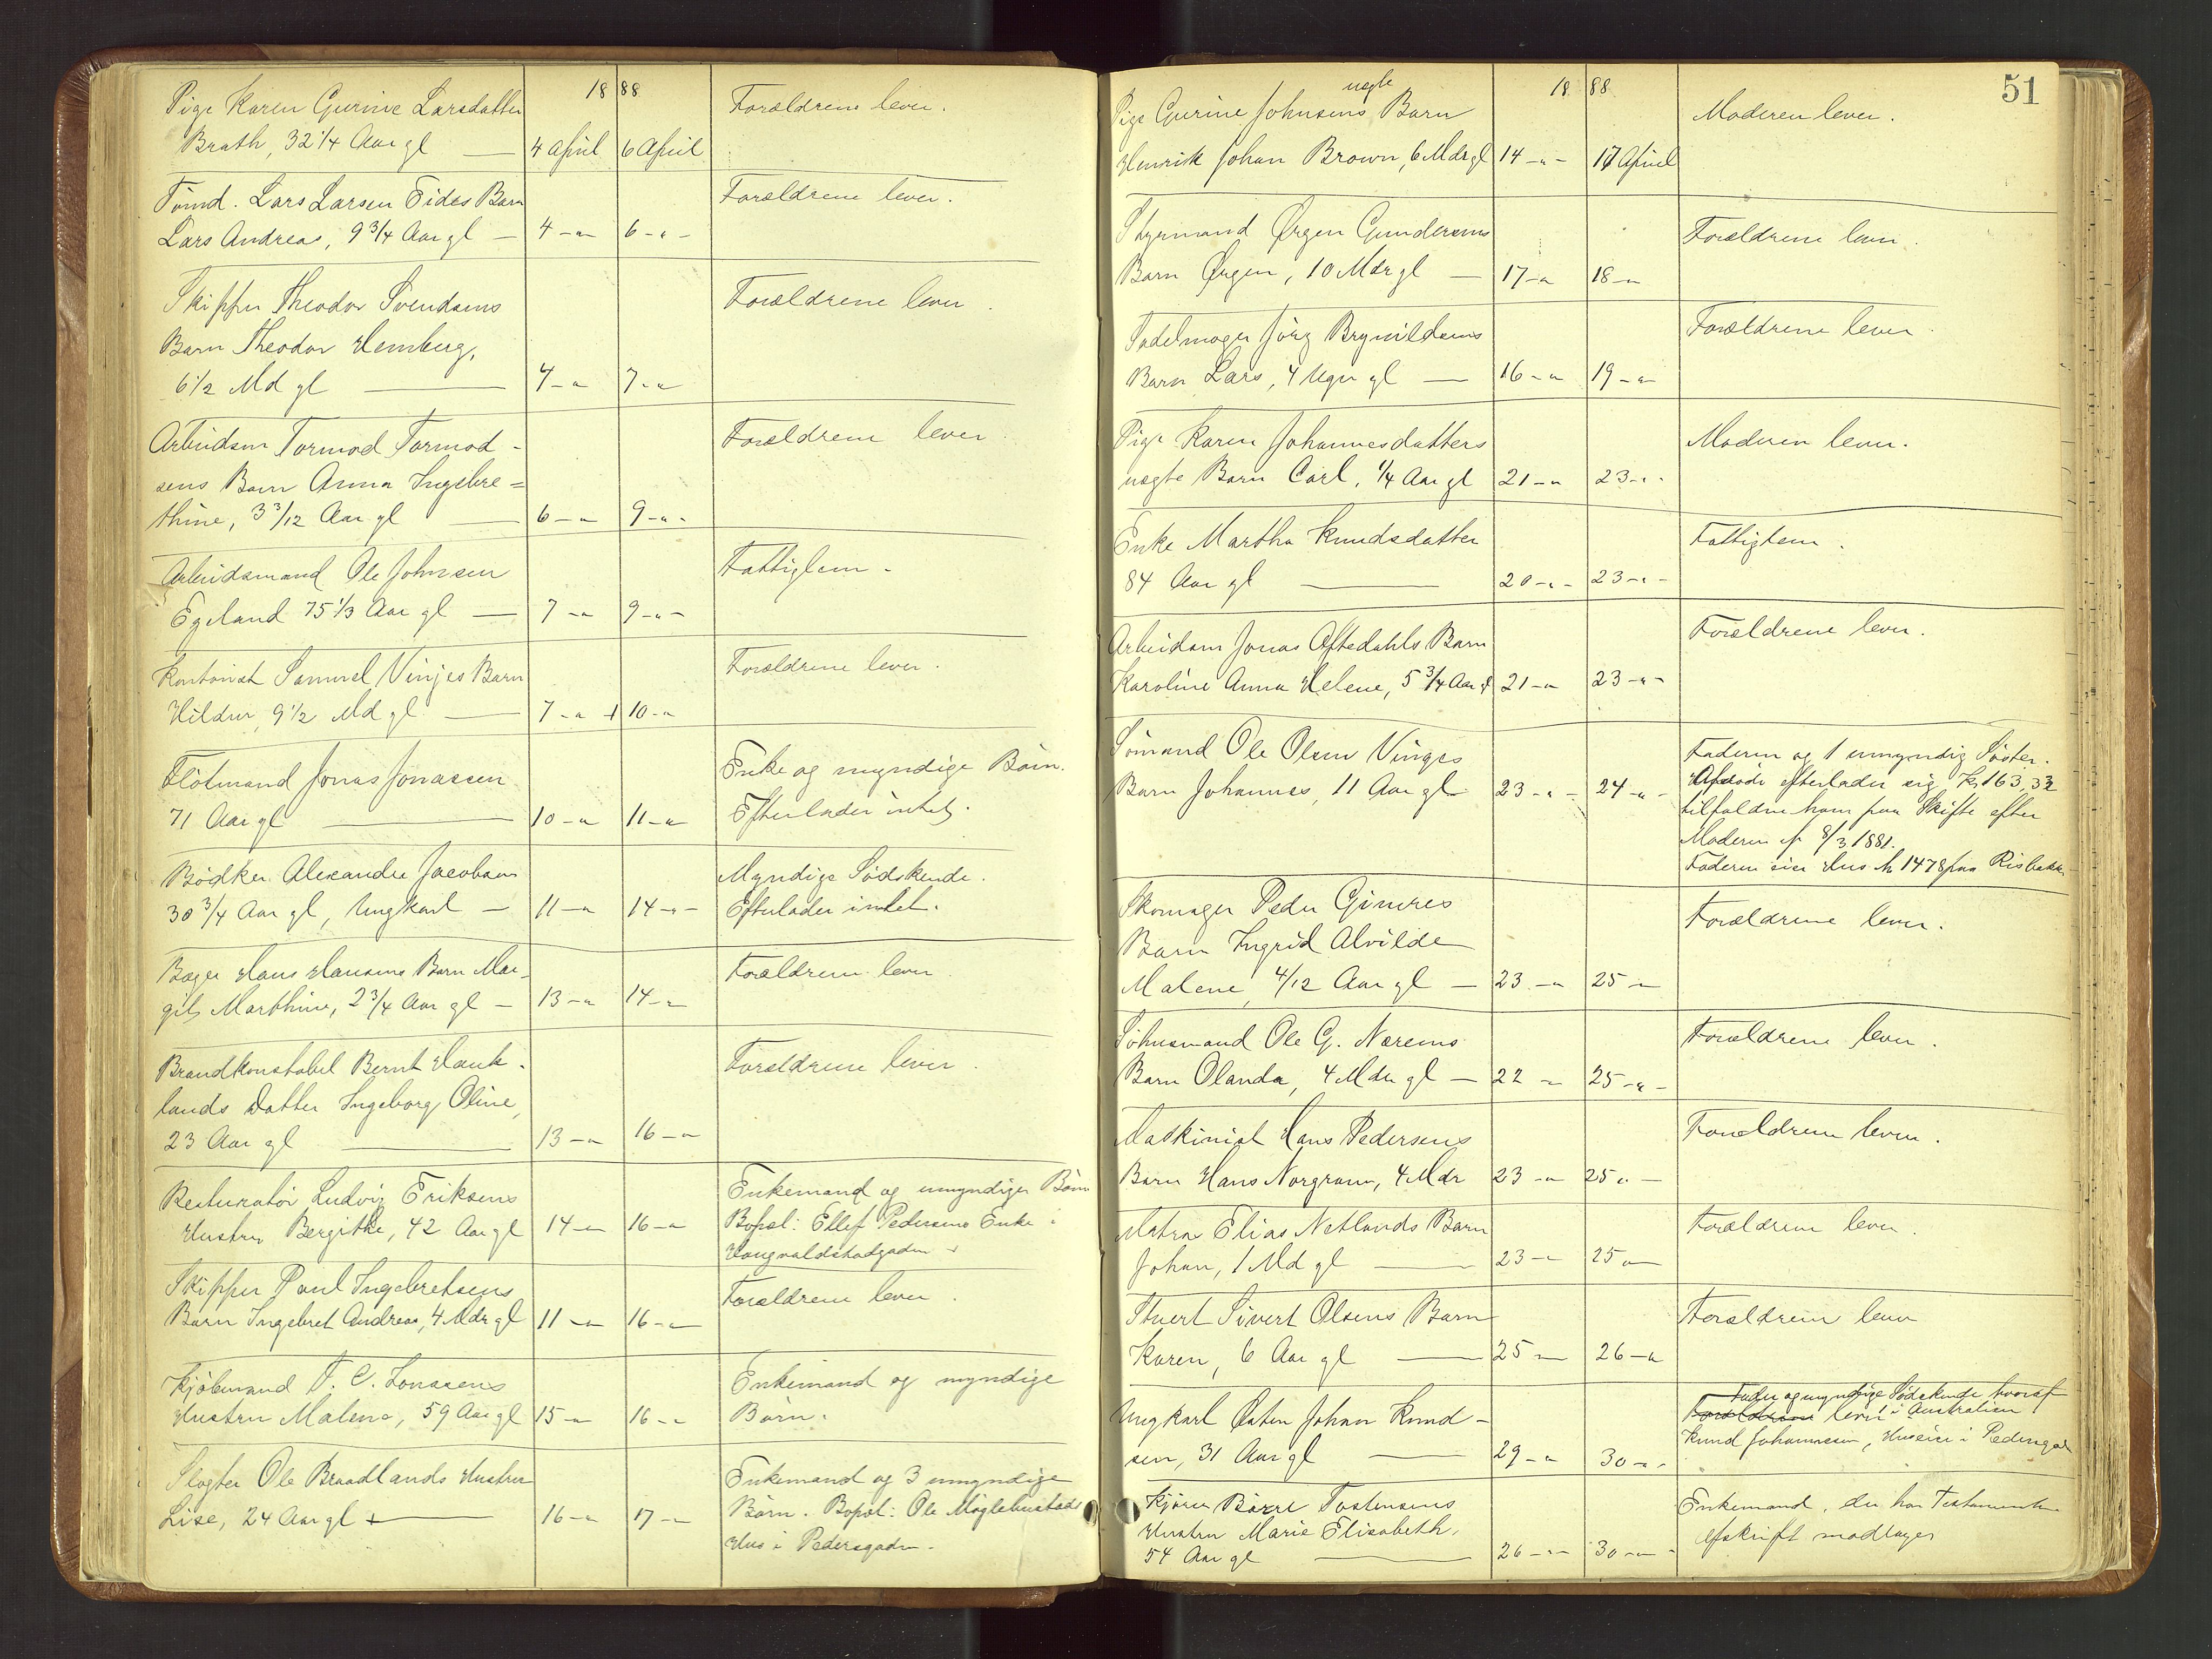 18 88
Pige Karen Gurine Larsdatter Forældrene lever.
Brath, 32 1/4 Aar gl — 4 April 6 April
Tømd. Lars Larsen Eides Barn Forældrene lever.
Lars Andreas, 9 3/4 Aar gl — 4 -"- 6 -"-
Skipper Theodor Svendsens Forældrene lever.
Barn Theodor Hemberg,
6 1/2 Md gl — 4 -"- 7 -"-
Arbeidsm Tormod Tormod- Forældrene lever.
sens Barn Anna Ingebre=
thine, 3 3/12 Aar gl — 6 -"- 9 -"-
Arbeidsmand Ole Johnsen Fattiglem.
Egeland 75 1/3 Aar gl — 7 -"- 9 -"-
Kontorist Samuel Vinjes Barn Forældrene lever.
Hildur, 9 1/2 Md gl — 7 -"- + 10 -"-
Flötmand Jonas Jonassen Enke og myndige Börn.
71 Aar gl — 10 -"- 11 -"- Efterlader intet.
Bödker Alexander Jacobsen Myndige Södskende.
30 3/4 Aar gl, Ungkarl — 11 -"- 14 -"- Efterlader intet.
Bager Hans Hansens Barn Mar- Forældrene lever
git Marthine, 2 3/4 Aar gl — 13 -"- 14 -"-
Brandkonstabel Bernt Hauk- Forældrene lever.
lands Datter Ingeborg Oline,
23 Aar gl — 13 -"- 16 -"-
Restauratör Ludvig Eriksens Enkemand og umyndige Börn
Hustru Bergithe, 42 Aar gl 14 -"- 16 -"- Bopæl: Ellef Pedersens Enke i
Haugvaldstadgaden +
Skipper Paul Ingebretsens Forældrene lever.
Barn Ingebret Andreas, 4 Mdr gl 11 -"- 16 -"-
Kjöbmand T. C. Lonasens Enkemand og myndige
Hustru Malene, 59 Aar gl 15 -"- 16 -"- Börn.
Slagter Ole Braadlands Hustru Enkemand og 3 umyndige
Lise, 24 Aar gl + — 16 -"- 17 -"- Börn. Bopæl: Ole Möglebustads
Hus i Pedersgaden.
51
18 88
uægte
Pige Gurine Johnsens Barn Moderen lever.
Henrik Johan Brown, 6 Mdr gl 14 -"- 17 April
Styrmand Ørgen Gundersens Forældrene lever.
Barn Ørgen, 10 Mdr gl — 17 -"- 18 -"-
Sadelmager Jörg Brynildsens Forældrene lever.
Barn Lars, 4 Uger gl — 16 -"- 19 -"-
Pige Karen Johannesdatters Moderen lever.
uægte Barn Carl, 1/4 Aar gl 21 -"- 23 -"-
Enke Martha Knudsdatter Fattiglem.
84 Aar gl — 20 -"- 23 -"-
Arbeidsm Jonas Oftedahls Barn Forældrene lever.
Karoline Anna Helene, 5 3/4 Aar gl 21 -"- 23 -"-
Sömand Ole Olsen Vinges Faderen og 1 umyndig Söster.
Barn Johannes, 11 Aar gl 23 -"- 24 -"- Afdöde efterlader sig Kr 163,33
tilfalden ham paa Skifte efter
Moderen af 8/3 1881.
Faderen eier Hus № 1478 paa Risbakk
Skomager Peder Gimres Forældrene lever.
Barn Ingrid Alvilde
Malene, 4/12 Aar gl — 23 -"- 25 -"-
Söhusmand Ole G. Nærems Forældrene lever.
Barn Olanda, 4 Mdr gl — 22 -"- 25 -"-
Maskinist Hans Pedersens Forældrene lever.
Barn Hans Norgrann, 4 Mdr 23 -"- 25 -"-
Matrs Elias Netlands Barn Forældrene lever.
Johan, 1 Md gl — 23 -"- 25 -"-
Stuert Sivert Olsens Barn Forældrene lever
Karen, 6 Aar gl — 25 -"- 26 -"-
Fader og myndige Södskende hvoraf
Ungkarl Østen Johan Knud- Forældrene lever i Australien
sen, 31 Aar gl — 29 -"- 30 -"- Knud Johannesen, Huseier i Pedersgad
Kjører Börre Tostensens Enkemand, der har Testamente
Hustru Marie Elisabeth, Afskrift modtages
54 Aar gl — 26 -"- 30 -"-